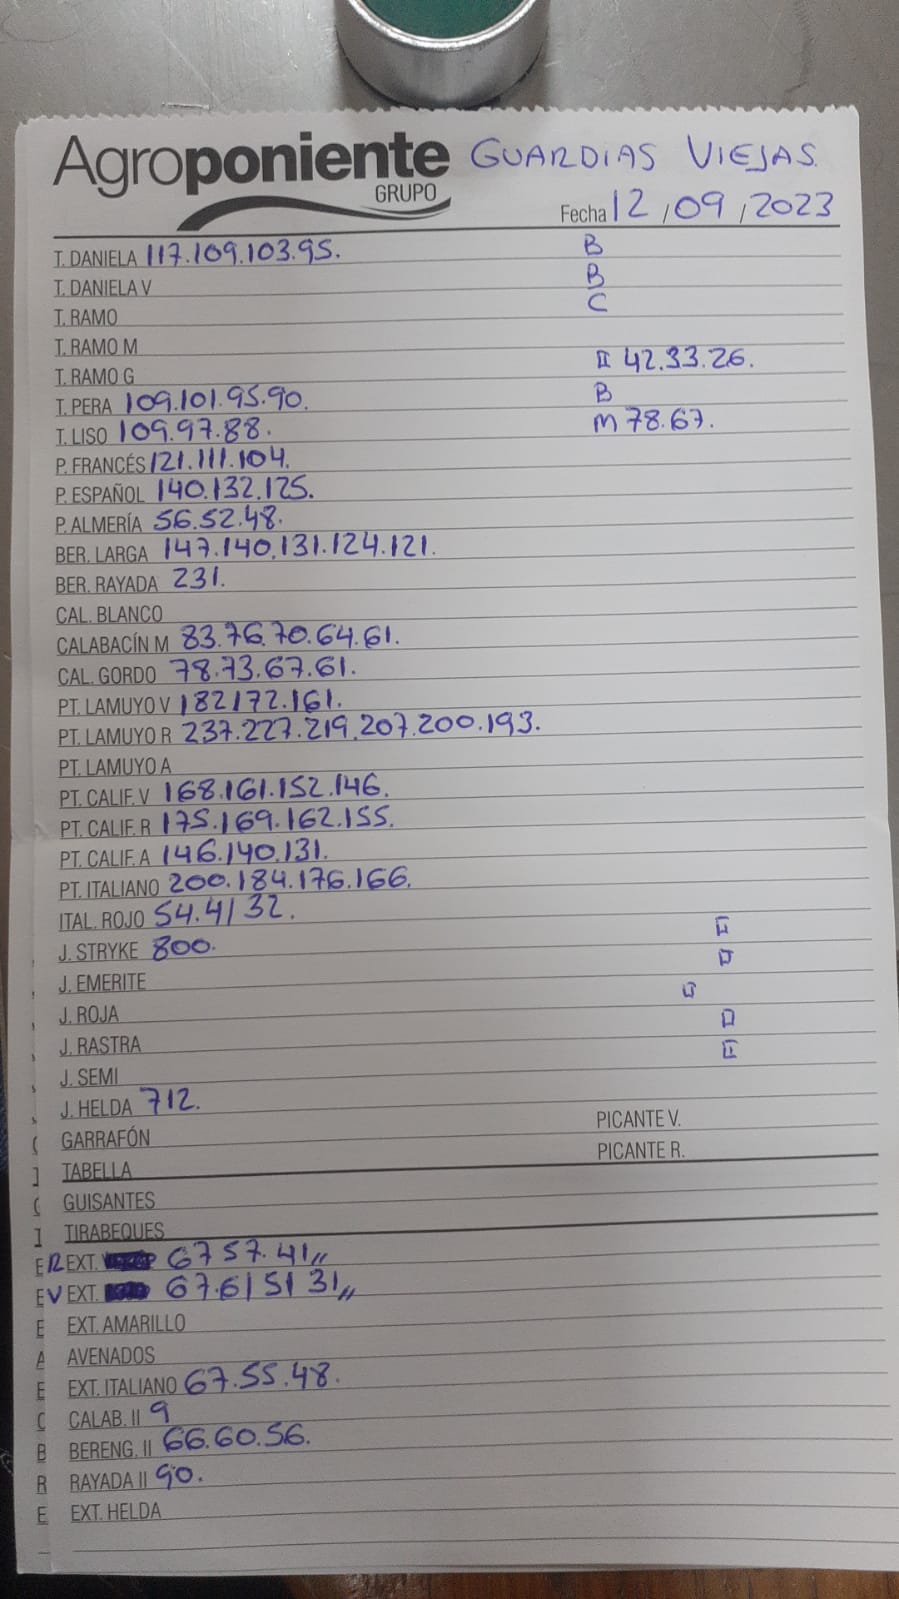 Agroponiente GUARDIAS VIEJAS.
GRUPO
Fecha 12/09/2023
T. DANIELA 117.109.103.95. B
T. DANELA V B
T. RAMO C
T. RAMO M
T. RAMO G II 42.33.26.
T. PERA 109.101.95.90. B
T. LISO 109.97.88. M 78.67.
P. FRANCÉS 121.111.104.
P. ESPAÑOL 140.132.125.
P. ALMERÍA 56.52.48.
BER. LARGA 147.140.131.124.121.
BER. RAYADA 231.
CAL. BLANCO
CALABACÍN M 83.76.70.64.61.
CAL. GORDO 78.73.67.61.
PT. LAMUYO V 182172.161.
PT. LAMUYO R 237.227.219.207.200.193.
PT. LAMUYO A
PT. CALIF. V 168.161.152.146.
PT. CALIF. R 175.169.162.155.
PT. CALIF. A 146.140.131.
PT. ITALIANO 200.184.176.166.
ITAL. ROJO 54.41 32.
J. STRYKE 800. II
J. EMERITE II
J. ROJA II
J. RASTRA II
J. SEMI II
J. HELDA 712.
GARRAFÓN PICANTE V.
TABELLA PICANTE R.
GUISANTES
TIRABEQUES
R EXT. 67 57.41,,
V EXT. 67.61 51 31,,
EXT. AMARILLO
AVENADOS
EXT. ITALIANO 67.55.48.
CALAB. II 9
BERENG. II 66.60.56.
RAYADA II 90.
EXT. HELDA